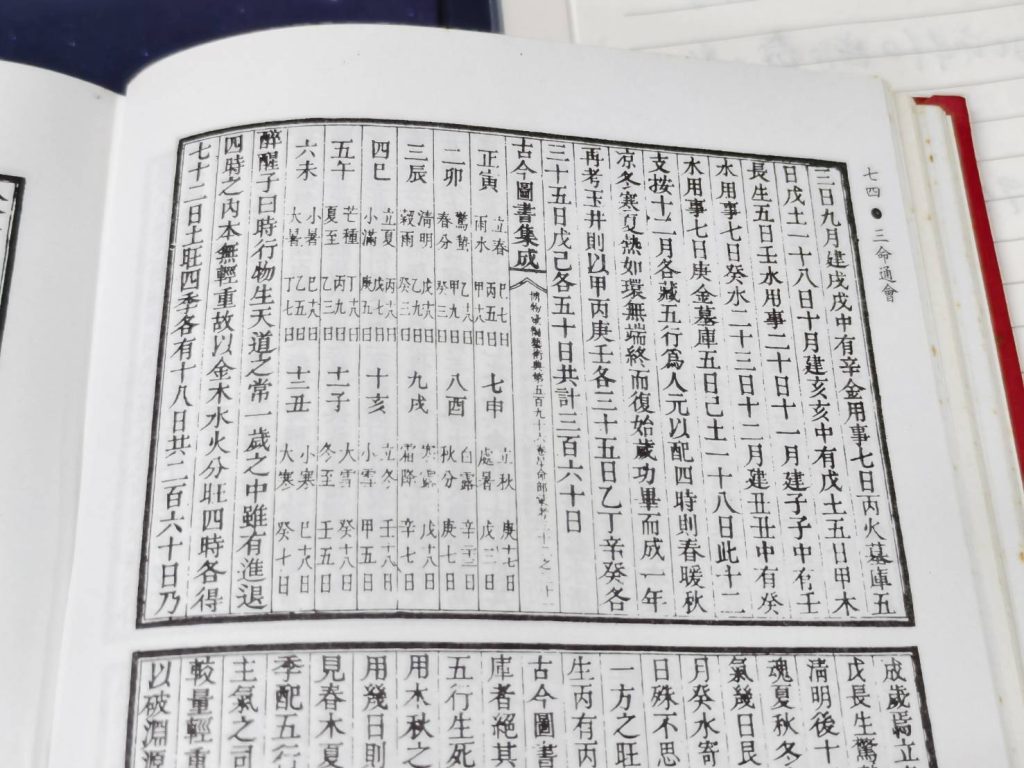 七四 • 三命通會
三日九月建戌戌中有辛金用事七日丙火墓庫五
日戊土一十八日十月建亥亥中有戊土五日甲木
長生五日壬水用事二十日十一月建子子中有壬
水用事七日癸水二十三日十二月建丑丑中有癸
水用事七日庚金墓庫五日己土一十八日此十二
支按十二月各藏五行爲人元以配四時則春暖秋
凉冬寒夏熱如環無端終而復始歲功畢而成一年
再考玉井則以甲丙庚壬各三十五日乙丁辛癸各
三十五日戊己各五十日共計三百六十日
古今圖書集成
正寅 立春 雨水 日 七申 立秋 處暑 庚十七日
二卯 驚蟄 春分 日 八酉 白露 秋分 庚七日
三辰 清明 穀雨 乙九 癸三日 九戌 寒露 霜降 戊十八 辛七日
四巳 立夏 小滿 戊七 庚五日 十亥 立冬 小雪 壬十八 甲五日
五午 芒種 夏至 丙九 乙三日 十一子 大雪 冬至 癸十八 壬五日
六未 小暑 大暑 乙五 日 十二丑 小寒 大寒 癸十日
醉醒子曰時行物生天道之常一歲之中雖有進退
四時之內本無輕重故以金木水火分旺四時各得
七十二日土旺四季各有十八日共二百六十日乃
成歲焉立
戊長生驚
清明後十
魂夏秋冬
氣幾日艮
月癸水寄
日殊不思
一方之旺
生丙有丙
古今圖書
庫者絕其
五行生死
用木秋之
用幾日則
見春木夏
季配五行
主氣之司
較量輕重
以破淵源